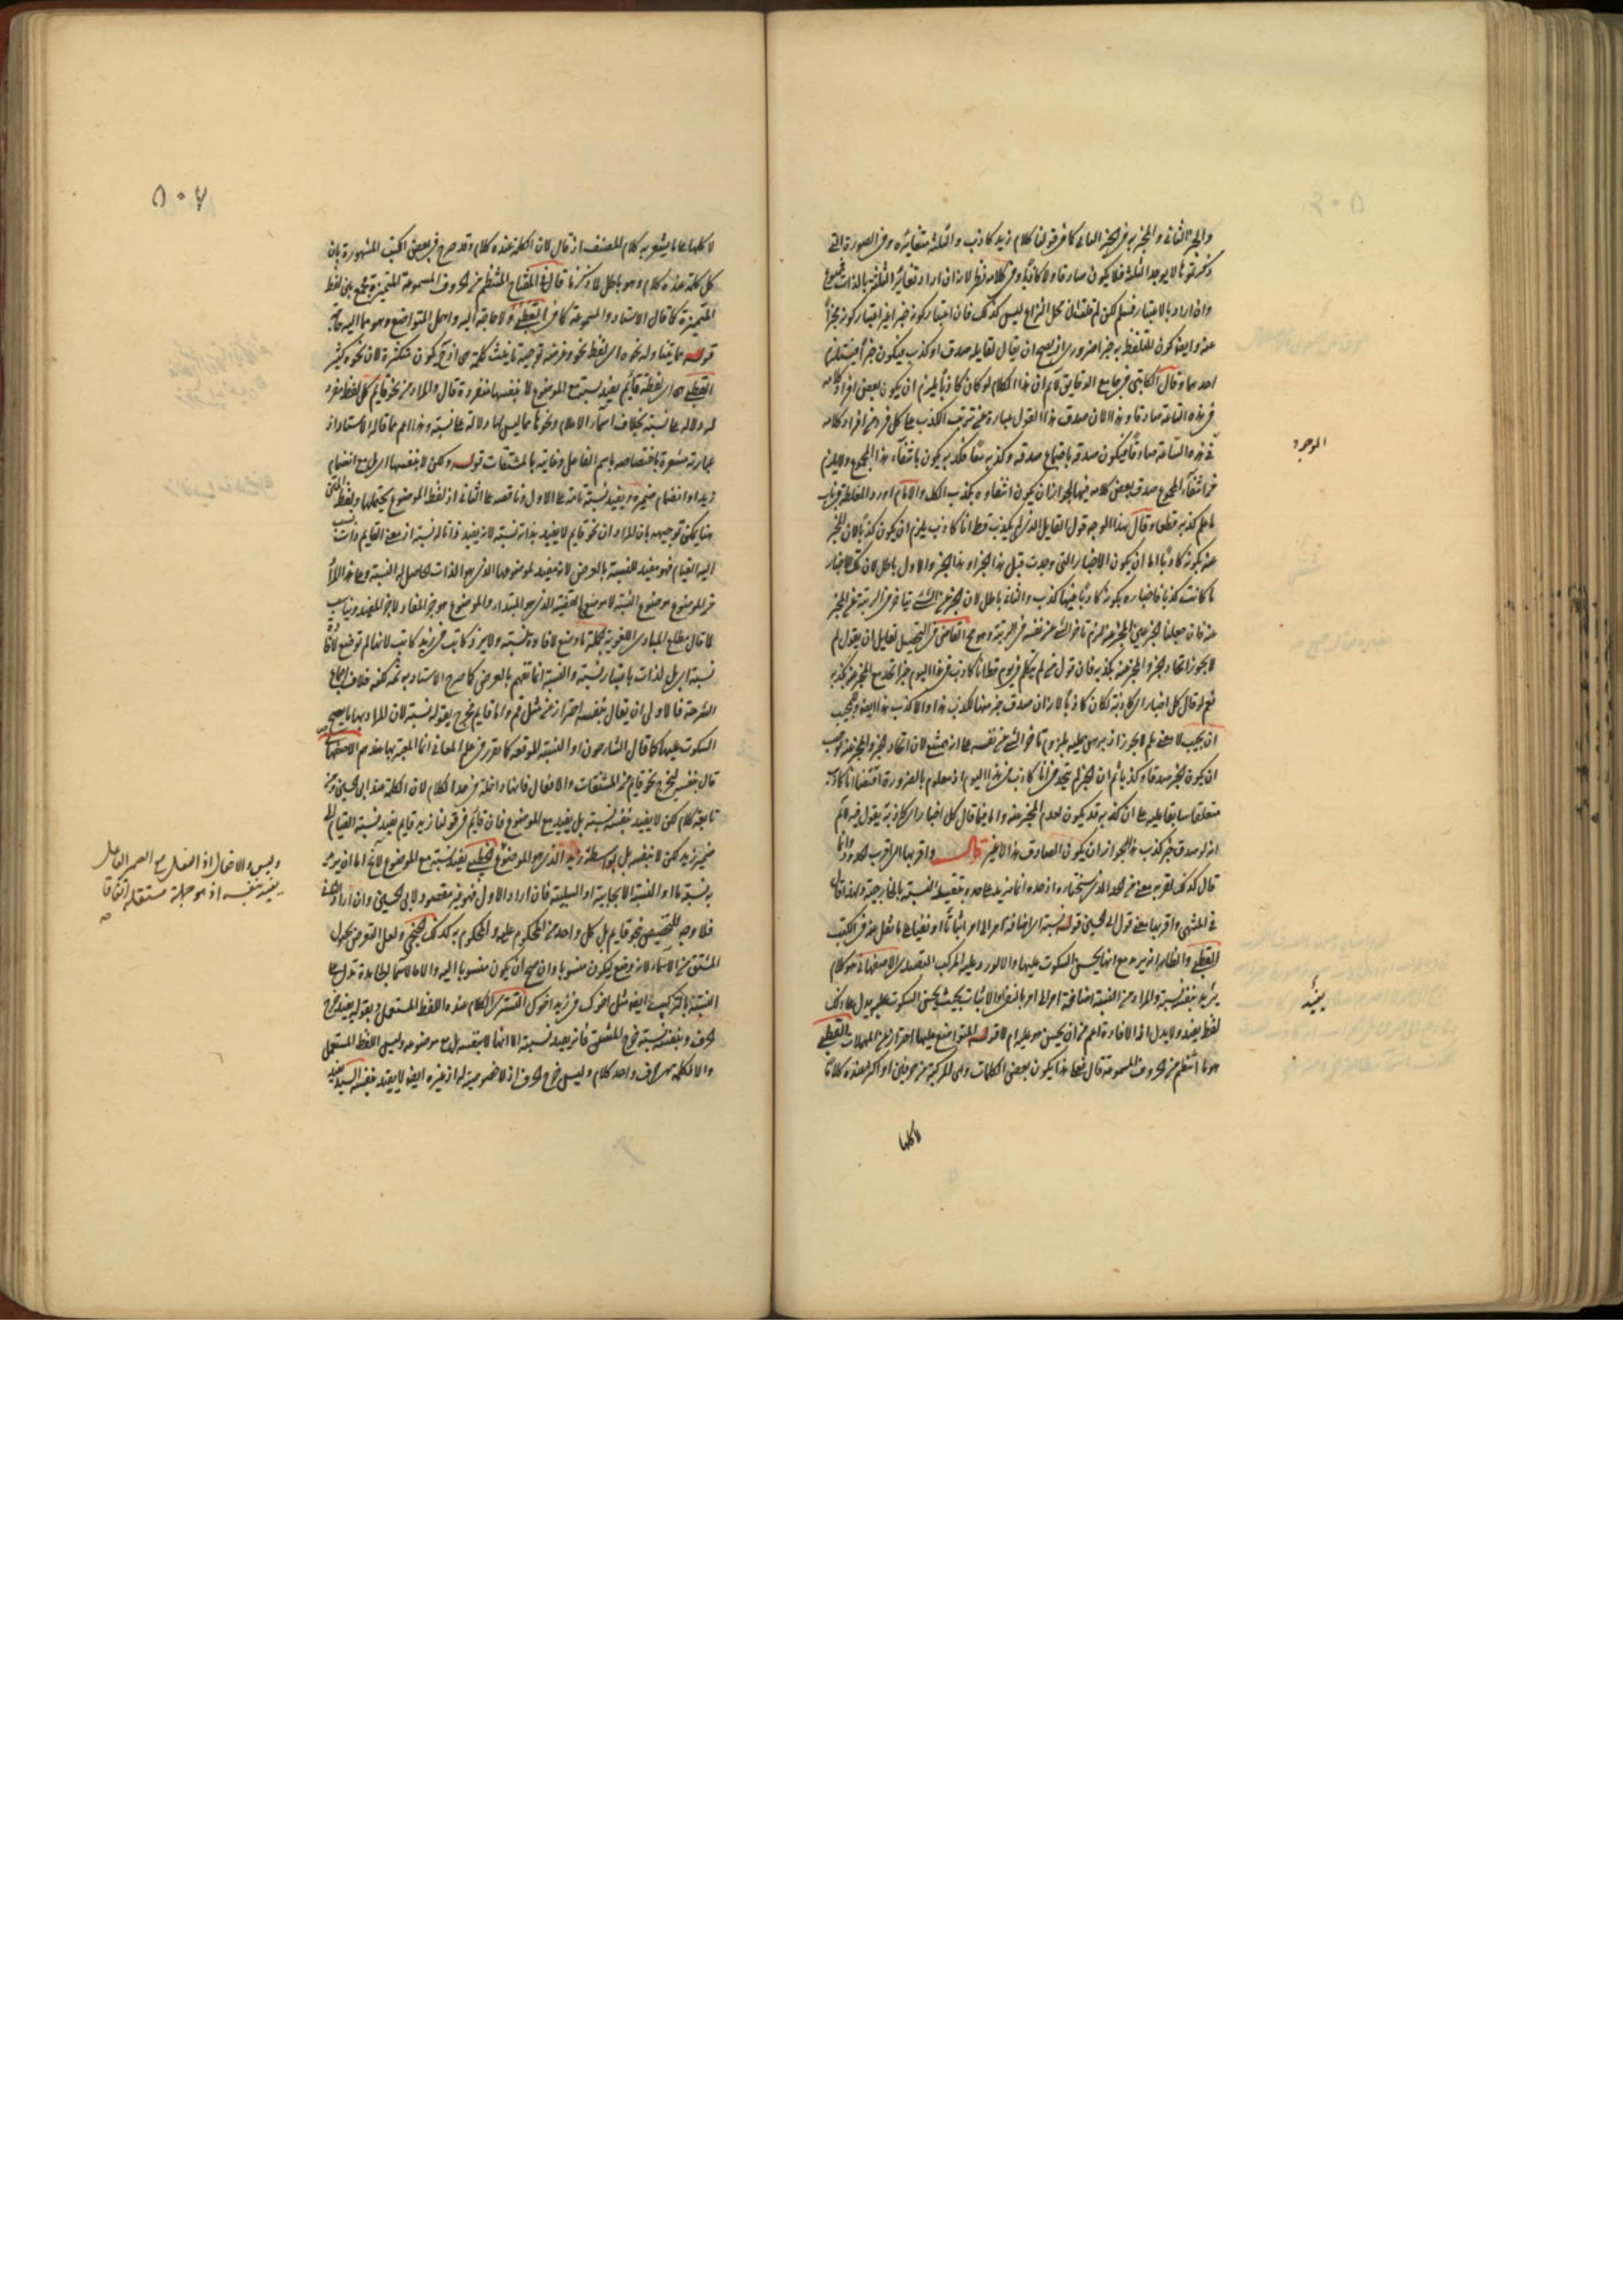 والجزء الثاني والمخبر به في الجزء الثاني كما في قولنا كلام زيد كاذب والثلثة متغايرة وفي الصورة التي
ذكرتموها لا يوجد الثلثة فلا يكون صادقا ولا كاذبا وفي كلامه نظر لانه ان اراد تغاير الثلثة بالذات فممنوع
وان اراد بالاعتبار فمسلم لكن لم قلت ان محل النزاع ليس كذلك فان اعتبار كونه خبرا غير اعتبار كونه مخبرا
عنه وايضا كون المتلفظ به خبرا ضروري اذ يصح ان يقال لقايله صدق او كذب فيكون خبرا مستلزما
احدهما وقال الكاتبي في جامع الدقايق لانم ان هذا الكلام لو كان كاذبا يلزم ان يكون بعض افراد كلامه
في هذه الساعة صادقا وهذا لان صدق هذا القول عبارة عن ترتب الكذب على كل فرد من افراد كلامه
الموجود
في هذه الساعة صادقا فيكون صدقه باجتماع صدقه وكذبه معا فكذبه يكون بانتفاء هذا المجموع ولا يلزم
من انتفاء المجموع صدق بعض كلامه فيها لجواز ان يكون انتفاؤه بكذب الكل والامام اورد المغلطة في باب
ما علم كذبه قطعا وقال بهذا الوجه قول القايل الذي لم يكذب قط انا كاذب يلزم ان يكون كذبا لان المخبر
عنه بكونه كاذبا اما ان يكون الاخبار التي وجدت قبل هذا الخبر او هذا الخبر والاول باطل لان تلك الاخبار
ما كانت كذبا فاخباره بكونه كاذبا فيها كذب والثاني باطل لان الخبر عن الشئ يتاخر في الرتبة عن المخبر
عنه فان جعلنا الخبر عين المخبر عنه لزم تاخر الشئ عن نفسه في الرتبة وهو مح القاضي في التحصيل لقايل ان يقول لم
لا يجوز اتحاد الخبر والمخبر عنه بكذبه فان قول من لم يتكلم في يوم قط انا كاذب في هذا اليوم خبر اتحد مع المخبر عنه بكذبه
نعم لو قال كل اخباري كاذبة لكان كاذبا لانه ان صدق خبر منها لكذب هذا والا كذب هذا ايضا ويجيب
ان يجيب لا معنى لم لا يجوز اذ برهن عليه بلزوم تاخر الشئ عن نفسه على انه يمتنع لان اتحاد الخبر والمخبر عنه يوجب
ان يكون الخبر صدقا وكذبا ثم ان الخبر لم يتحد في انا كاذب في هذا اليوم اذ معلوم بالضرورة اقتضاء انا كاذب
متعلقا سابقا عليه على ان كذبه قد يكون لعدم المخبر عنه واما فيما قال كل اخباري كاذبة يقول فيه لانم
انه لو صدق خبر كذب هذا لجواز ان يكون الصادق هذا لا غير قال واقربها اي اقرب الحدود وانما
قال كذلك لقربه معنى من الحد الذي سيختاره اذ حده انما يزيد على حده بتقييد النسبة بالخارجية ولهذا قال
في المنتهى واقربها معنى قول ابي الحسين قوله نسبة اي اضافة امر الى امر اثباتا او نفيا على ما نقل عنه في الكتب
القطبي والظاهر انه يريد مع انها يحسن السكوت عليها والا لورد عليه المركب التقييدي الاصفهاني هو كلام
يفيد
يفيد بنفسه نسبة والمراد من النسبة اضافة امر الى امر بالنفي او الاثبات بحيث يحسن السكوت عليه يدل على ذلك
لفظ يفيد ولا يدل اذا الافادة اعم من ان يحسن هو عليه ام لا قوله المتواضع عليها احتراز عن المهملات القطبي
هو ما انتظم من الحروف المسموعة قال فعلى هذا يكون بعض الكلمات وهي المركبة من حرفين او اكثر عنده كلاما
لا كلها
٥٠٧
لا كلها على ما يشعر به كلام المصنف اذ قال لان الكلمة عنده كلام وقد صرح في بعض الكتب المشهورة بان
كل كلمة عنده كلام وهو باطل لما ذكرنا قال في المفتاح المنتظم من الحروف المسموعة المتميزة فجمع بين لفظ
المتميزة كما قال الاستاد والمسموعة كما في القطبي ولا حاجة اليه واهمل المتواضع وهو مما اليه حاجة
قوله مما يتناوله نحوه اي لفظ نحو وغرضه توجيه تانيث كلمة هي اذ ح يكون متكثرة لان نحوه كثير
القطبي هي اي لفظة قائم يفيد نسبة مع الموضوع لا بنفسها منفردة قال والمراد من نحو قايم كل لفظ مفرد
له دلالة على نسبة بخلاف اسماء الاعلام ونحوها مما ليس لها دلالة على نسبة وهذا اعم مما قاله الاستاد اذ
عبارته مشعرة باختصاصه باسم الفاعل وغايته بالمشتقات قوله ولكن لا بنفسها اي بل مع انضمام
زيد او انضمام ضميره ويفيد نسبة تامة على الاول وناقصة على الثاني اذ لفظ الموضوع يحتملها ولفظ المتن
هنا يمكن توجيهه بان المراد ان نحو قايم لا يفيد بذاته نسبة لانه يفيد ذاتا له نسبة اذ معنى القايم ذات نسب
اليه القيام فهو مفيد للنسبة بالعرض لانه مفيد لموضوعها الذي هو الذات الحاصل له النسبة وعلى هذا المراد
من الموضوع موضوع النسبة لا موضوع القضية الذي هو المبتداء والموضوع هو جزء المفاد لا جزء المفيد ويناسب
ما قال مطلع المبادي اللغوية الجملة ما وضع لافادة نسبة ولا يرد كاتب في زيد كاتب لانها لم توضع لافادة
نسبة اي بل لذات باعتبار نسبة والنسبة انما تفهم بالعرض كما صرح الاستاد به ثمة لكنه خلاف اجماع
الشرحة فالاولى ان يقال بنفسه احتراز عن مثل قم وانا قايم يخرج بقوله نسبة لان المراد بها ما يصح
السكوت عليها كما قال الشارحون او النسبة الموقعة كما تقرر في علم المعاني انها المعتبر بها عندهم الاصفهاني
قال بنفسه ليخرج نحو قايم من المشتقات والافعال فانها داخلة في حد الكلام لان الكلمة عند ابي الحسين ومن
تابعه كلام لكن لا يفيد بنفسه نسبة بل يفيد مع الموضوع فان قائم في قولنا زيد قايم يفيد نسبة القيام الى
ضمير زيد لكن لا بنفسه بل بواسطة زيد الذي هو الموضوع الخنجي يفيد نسبة مع الموضوع لانخ اما ان يريد
وليس والافعال اذ الفعل مع الضمير الفاعل
يفيد بنفسه اذ هو جملة مستقلة اتفاقا
صح
به نسبة ما او النسبة الايجابية او السلبية فان اراد الاول فهو غير مقصود لابي الحسين وان اراد الثاني
فلا وجه لتخصيص نحو قايم بل كل واحد من المحكوم عليه والمحكوم به كذلك الخنجي ولعل التعرض لكون
المشتق من الاسماء لانه وضع ليكون منسوبا وان صح ان يكون منسوبا اليه والا فالاسماء الجامدة تدل على
النسبة بالتركيب ايضا مثل اخوك في زيد اخوك التستري الكلام عنده اللفظ المستعمل وبقوله يفيد خرج
الحرف وبنفسه نسبة خرج المشتق فانه يفيد نسبة الا انها لا بنفسه بل مع موضوعه وليس اللفظ المستعمل
والا فالكلمة بهر حرف واحد كلام وليس خرج الحرف اذ لا خصوصية له اذ غيره ايضا لا يفيد بنفسه السيد يفيد